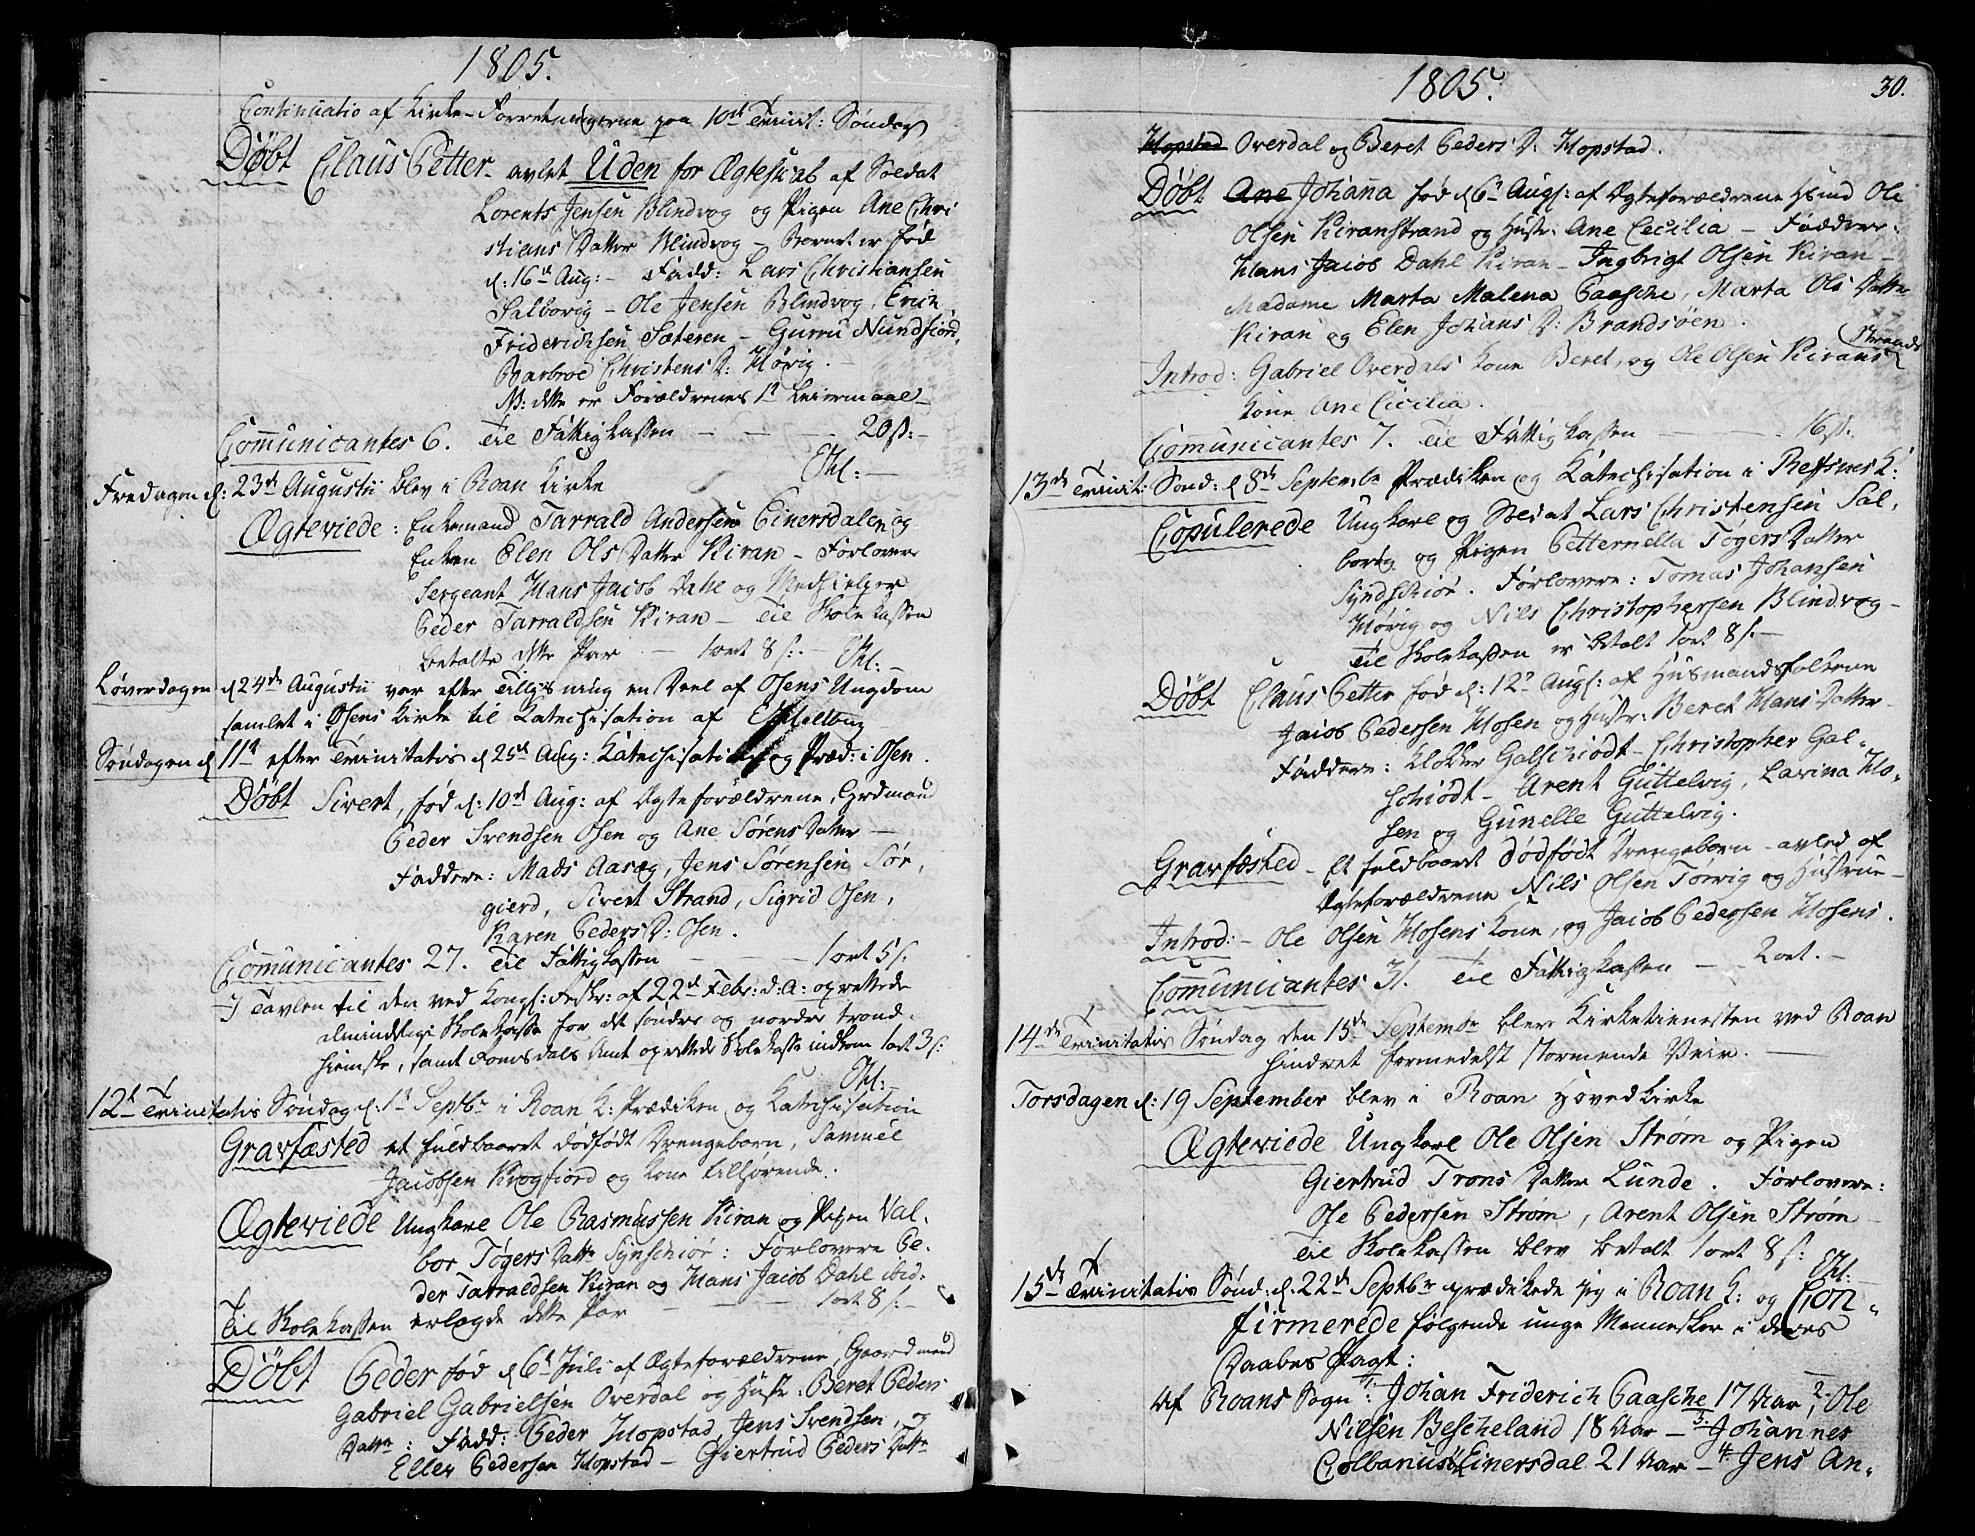 1805.
Continuatio af Kirke-Forretningerne paa 10de Trinit: Søndag
Døbt Claus Petter - avlet Uden for Ægteskab af Soldat
Lorents Jensen Blindvog og Pigen Ane Chri
stians Datter Blindvog - Barnet er fød
d: 16de Aug: - Fadd: Lars Christiansen
Salborig - Ole Jensen Blindvog, Erich
Friderichsen Sæteren - Gurru Nundfiord,
Barbroe Christens D: Hørig. -
NB: dette er Forældrenes 1te Leiermaal -
Communicantes 6. Til Fattigkassen - - - 20 s: -
Ehl: -
Fredagen d: 23de Augustii blev i Roan Kirke
Ægteviede: Enkemand Tarrald Andersen Einersdalen og
Enken Elen Ols Datter Kiran - Forlovere
Sergeant Hans Jacob Dahl og Medhielper
Peder Tarraldsen Kiran - Til Skolekassen
betalte dette Par - 1 ort 8 s: -
Ehl: -
Løverdagen d 24de Augustii var efter Tillysning en Deel af Osens Ungdom
samlet i Osens Kirke til Katechisation af
Søndagen d 11te efter Trinitatis d 25de Aug: Katechisation og Præd: i Osen.
Døbt Sivert, fød d: 10de Aug: af Ægteforældrene, Grdmand
Peder Svendsen Osen og Ane Sørens Datter -
Faddere: Mads Aaræg, Jens Sørensen Sør,
gierd, Sivert Strand, Sigrid Osen,
Karen Peders D: Osen.
Communicantes 27. Til Fattigkassen - - - 1 ort 5 s:
I Tavlen til den ved Kongl: Reskr: af 22de Febr: d: A: oprettede
almindelige Skolekasse for det søndre og nordre Trond-
hiemske, samt Romsdals Amt oprettede Skolekasse indkom 1 ort 3 s:
Ehl: -
12te Trinitatis Søndag d: 1te Septbr i Roan K: Prædiken og Katechisation
Gravfæsted et fuldbaaret dødfødt Drengebarn, Samuel
Jacobsen Krogfiord og Kone tilhørende.
Ægteviede Ungkarl Ole Rasmussen Kiran og Pigen Val-
bor Tøgers Dattr Synschiør: Forlovere Pe-
der Tarraldsen Kiran og Hans Jacob Dahl ibid.
Til Skolekassen erlagde dette Par - - - 1 ort 8 s: -
Døbt Peder fød d 6te Juli af Ægteforældrene, Gaardmand
Gabriel Gabrielsen Overdal og Hustr: Beret Peders
Dattr: Fadd: Peder Hopstad, Jens Svendsen, og
Eller Pedersen Hopstad - Giertrud Peders Dattr
1805.
30.
Hopstad Overdal og Beret Peders D: Hopstad.
Døbt Ane Johanna fød d 6te Aug: af Ægteforældrene Hsmd Ole
Olsen Kiranstrand og Hustr: Ane Cecilia - Faddere:
Hans Jacob Dahl Kiran - Ingbrigt Olsen Kiran -
Madame Marta Malena Paasche, Marta Ols Datter
Kiran og Elen Johans D: Brandsøen.
Strands
Introd: Gabriel Overdals Kone Beret, og Ole Olsen Kirans
Kone Ane Cicilia.
Communicantes 7. Til Fattigkassen - - - 16 s:
13de Trinit: Sønd: d 8de Septembr Prædiken og Katechisation i Ressnes K:
Copulerede Ungkarl og Soldat Lars Christensen Sal-
borig og Pigen Petternella Tøgers Datter
Syndschiør. Forlovere: Tomas Johansen
Hørig og Nils Christophersen Blindvog -
Til Skolekassen er betalt 1 ort 8 s. -
Døbt Claus Petter fød d: 12te Aug: af Husmandsfolkene
Jacob Pedersen Hosen og Hustr: Beret Hans Datter -
Faddere: Klokker Galschiødt - Christopher Gal-
schiødt - Arent Guttelvig, Lavina Ho-
sen og Gunelle Guttelvig.
Gravfæsted - Et fuldbaaret dødfødt Drengebarn - avled af
Ægteforældrene Nils Olsen Tørvig og Hustrue -
Introd: - Ole Olsen Hosens Kone, og Jacob Pedersen Hosens.
Communicantes 31. Til Fattigkassen - - 2 ort. -
14de Trinitatis Søndag den 15de Septembr blev Kirketienesten ved Roan
hindret formedelst stormende Veir. -
Torsdagen d: 19 September blev i Roan Hovedkirke
Ægteviede Ungkarl Ole Olsen Strøm og Pigen
Giertrud Trons Datter Lunde. Forlovere:
Ole Pedersen Strøm, Arent Olsen Strøm -
Til Skolekassen blev betalt 1 ort 8 s:
Ehl: -
15de Trinitatis Sønd: d. 22de Septbr prædikede jeg i Roan K: og Con-
firmerede følgende unge Mennesker i deres
Daabes Pagt:
Af Roans Sogn 1: Johan Friderich Paasche 17 Aar, 2. Ole
Nielsen Bescheland 18 Aar - 3. Johannes
Colbanus: Einersdal 21 Aar - 4. Jens An-